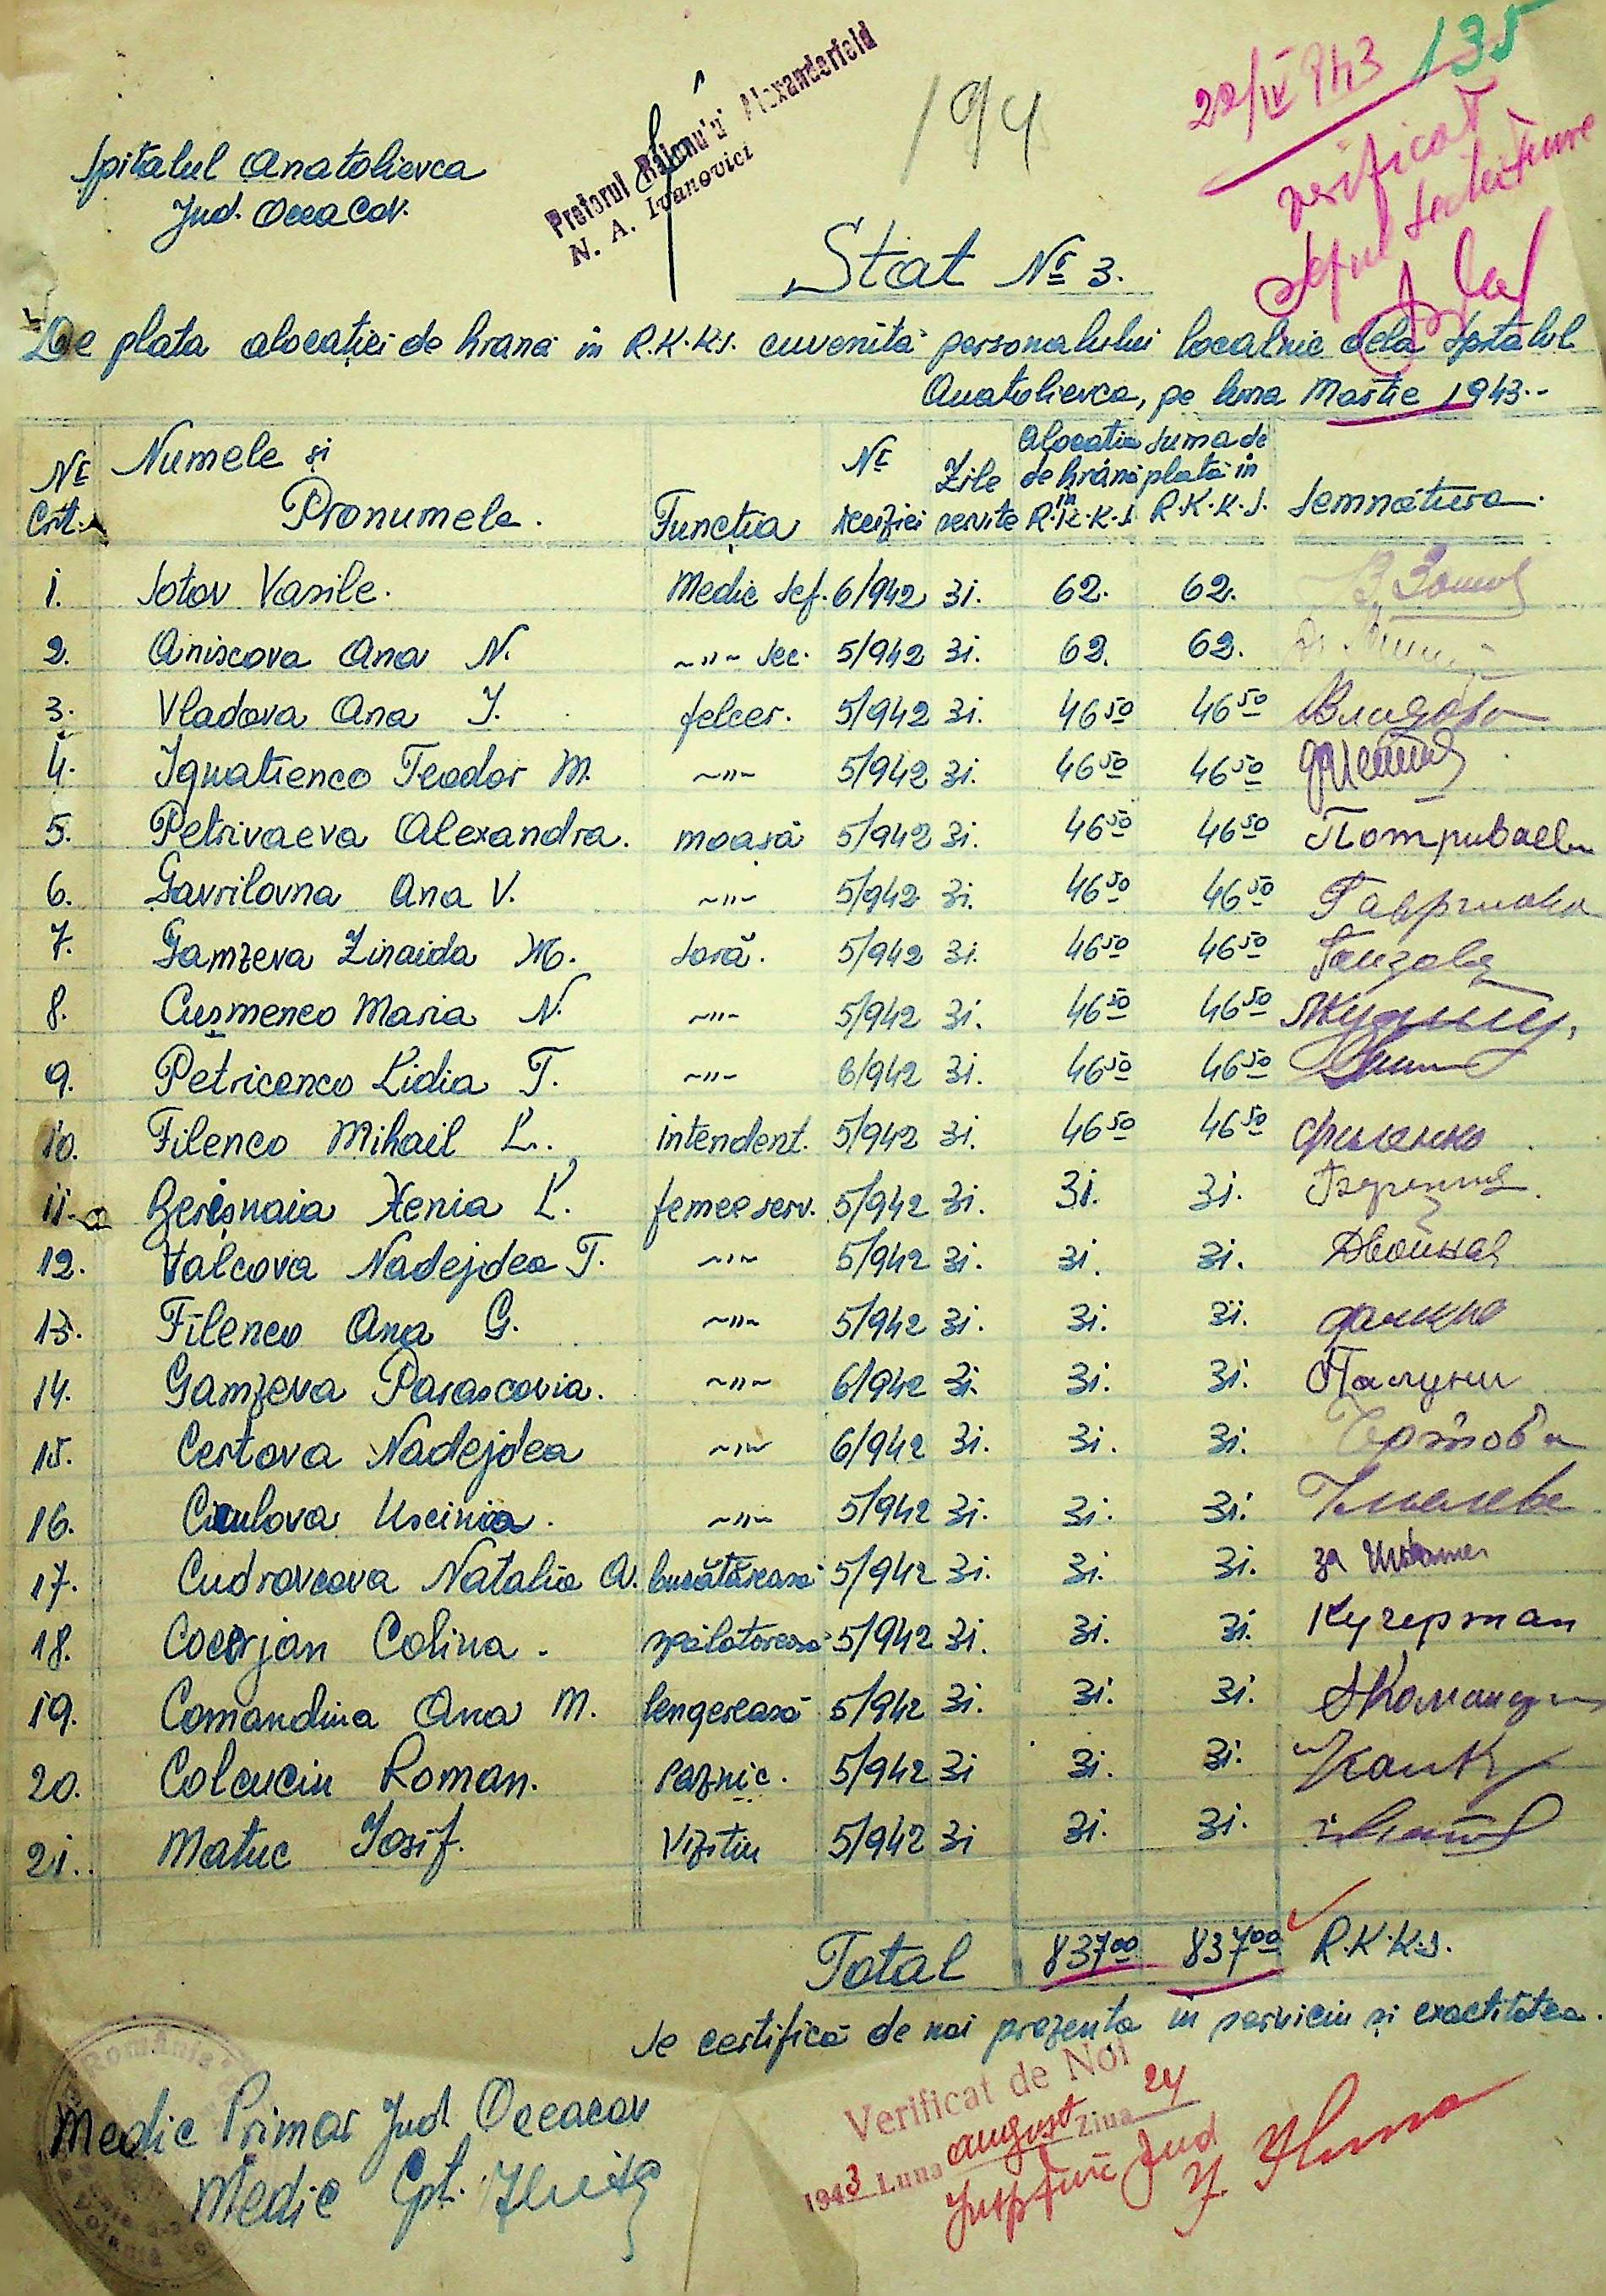 135
22/IV 943
verificat
Șeful sectiei
194
Pretorul Raionului Alexanderfeld
N. A. Ivanovici
Spitalul Anatolievca
Jud. Oceacov.
Stat № 3.
De plata alocației de hrană în R.K.K.S. cuvenită personalului localnic dela Spitalul
Anatolievca, pe luna Martie 1943.-
№ Crt. Numele și Pronumele. Funcția № deciziei Zile servite Alocatia de hrană in R.K.K.S. Suma de plată in R.K.K.S. Semnătura.
1. Sotov Vasile. Medic Șef. 6/942 31. 62. 62.
2. Aniscova Ana N. ~"~ Sec. 5/942 31. 62. 62.
3. Vladova Ana I. felcer. 5/942 31. 46 50 46 50 Владова
4. Ignatienco Teodor M. ~"~ 5/942 31. 46 50 46 50
5. Petrivaeva Alexandra. moașă 5/942 31. 46 50 46 50 Потриваева
6. Gavrilovna Ana V. ~"~ 5/942 31. 46 50 46 50
7. Gamzeva Zinaida M. soră. 5/942 31. 46 50 46 50
8. Cușmenco Maria N. ~"~ 5/942 31. 46 50 46 50
9. Petricenco Lidia T. ~"~ 6/942 31. 46 50 46 50
10. Filenco Mihail L. intendent. 5/942 31. 46 50 46 50 Филенко
11. Bereșnaia Xenia L. femee serv. 5/942 31. 31. 31.
12. Valcova Nadejdea T. ~"~ 5/942 31. 31. 31.
13. Filenco Ana G. ~"~ 5/942 31. 31. 31.
14. Gamzeva Parascovia. ~"~ 6/942 31. 31. 31.
15. Certova Nadejdea ~"~ 6/942 31. 31. 31. Чертова
16. Uscinia. ~"~ 5/942 31. 31. 31.
17. Cudrovcova Natalia A. bucătăreasă 5/942 31. 31. 31. за
18. Cocerjan Colina. spălatoreasă 5/942 31. 31. 31. Кучерман
19. Comandina Ana M. lengereasă 5/942 31. 31. 31.
20. Colcuciu Roman. paznic. 5/942 31 31. 31.
21. Matuc Iosif. Vizitiu 5/942 31 31. 31.
Total 837 00 837 00 R.K.K.S.
Se certifică de noi prezența in serviciu și exactitatea.
România
Medic Primar Jud. Oceacov
Medic Cpt.
Verificat de Noi
1943 Luna august Ziua 24
Jud